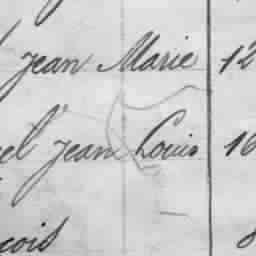 Jean Marie 12
el Jean Louis 16
çois